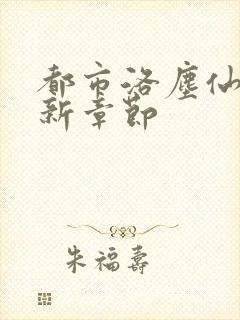 都市洛塵仙
新章節
朱福壽